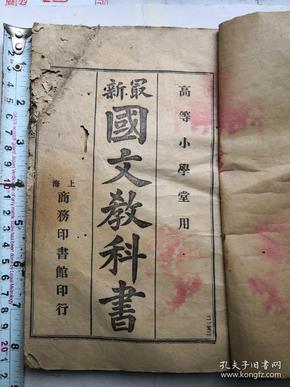 高等小學堂用
最新
國文教科書
上海
商務印書館印行
孔夫子旧书网